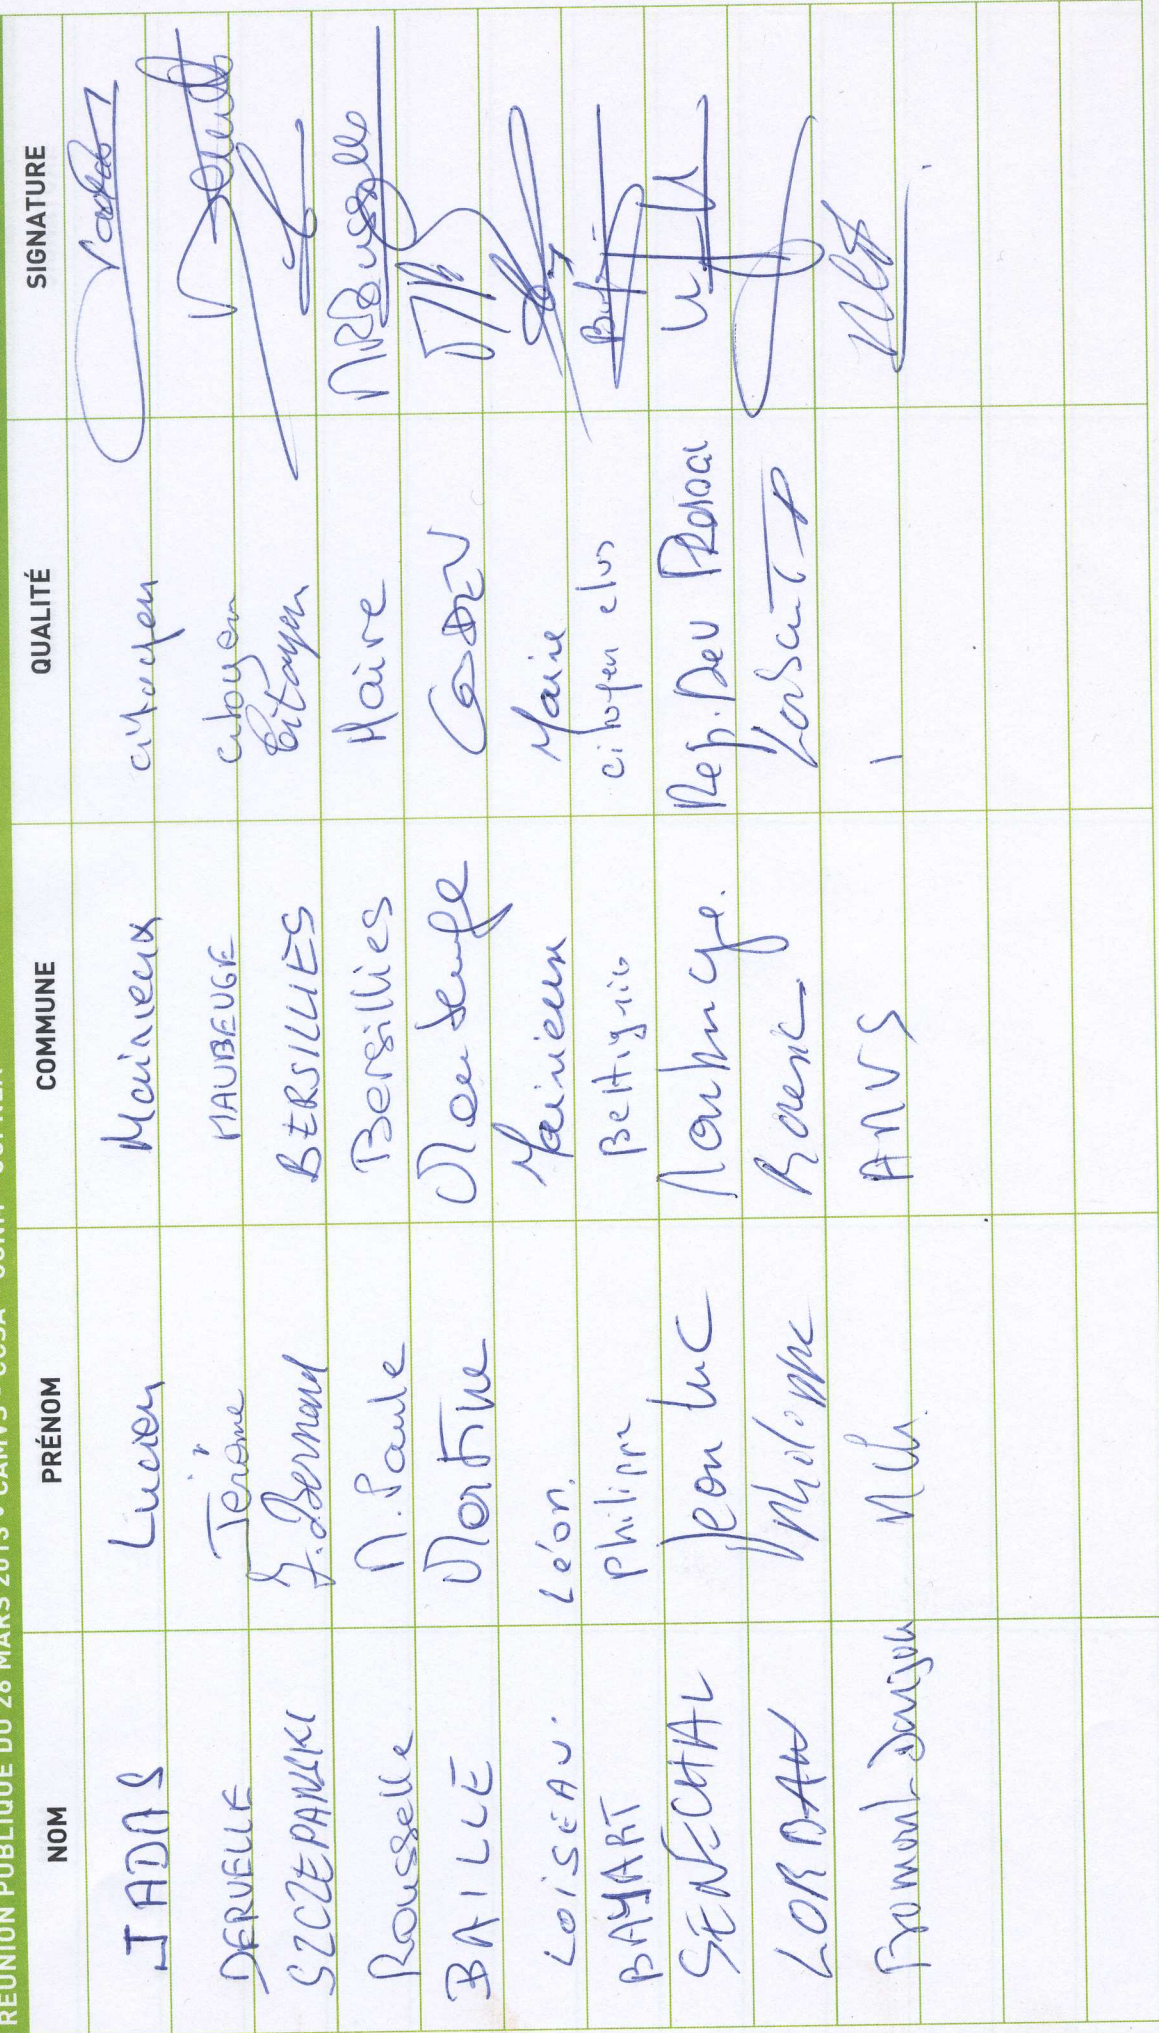 RÉUNION PUBLIQUE DU 28 MARS 2013 • CAMVS - CCSA -
NOM PRÉNOM COMMUNE QUALITÉ SIGNATURE
JADAS Lucien Mairieux citoyen
DERUELLE Jérôme MAUBEUGE citoyen
SZCZEPANSKI J. Bernard BERSILLIES Citoyen
Rousselle M. Paule Bersillies Maire MP Rousselle
BAILLE Martine Maubeuge CODEV
LOISEAU. Léon. Mairieux Maire
BAYART Philippe Bettignies citoyen elus
SENECHAL Jean Luc Maubeuge. Rep. Dev
LORBAN Philippe
AMVS